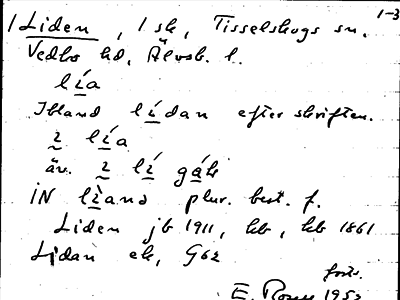 1-3
/ Liden, 1 sk, Tisselskogs sn.
Vedbo hd, Älvsb. l.
lía
Ibland lídan efter skriften.
ɪ lía
äv. ɪ lí gåḷ
IN lìana plur. best. f.
Liden jb 1911, kb, hb 1861
Lidan ek, G62
forts.
E. 1952